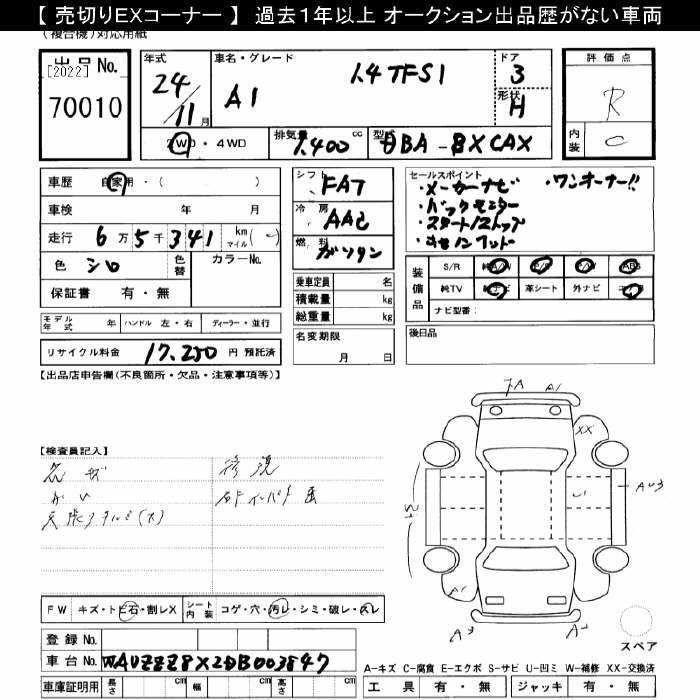 【 売切りEXコーナー 】 過去１年以上 オークション出品歴がない車両
(複合機)対応用紙
出品 No.
[2022]
70010
年式
24/11月
車名・グレード
A1 1.4 TFSI
ドア
3
形状
H
2WD・4WD
排気量
1.400 cc
型式
DBA-8XCAX
評価点
R
内装
C
車歴 自家用・( )
車検 年 月
走行 6万5千341 km マイル( )
色 シロ
色替
カラーNo.
保証書 有・無
シフト
FAT
冷房
AAC
燃料
ガソリン
乗車定員 名
積載量 kg
総重量 kg
名変期限
月 日
セールスポイント
・メーカーナビ ・ワンオーナー!!
・バックモニター
・スタート/ストップ
装備品
S/R 純A/W P/S P/W ABS
純TV 純ナビ 革シート 外ナビ エアB
ナビ型番:
モデル年式 年
ハンドル 左・右
ディーラー・並行
後日品
リサイクル料金 17.250 円 預託済
【出品店申告欄(不良箇所・欠品・注意事項等)】
【検査員記入】
FW キズ・トビ石・割レX
シート内装 コゲ・穴・汚レ・シミ・破レ・スレ
7A A1
XX
AU3
A1
A3
スペア
登録 No.
車台 No. WAUZZZ8X2DB003847
A-キズ C-腐食 E-エクボ S-サビ U-凹ミ W-補修 XX-交換済
車庫証明用 長さ cm 幅 cm 高さ cm
工具 有・無 ジャッキ 有・無